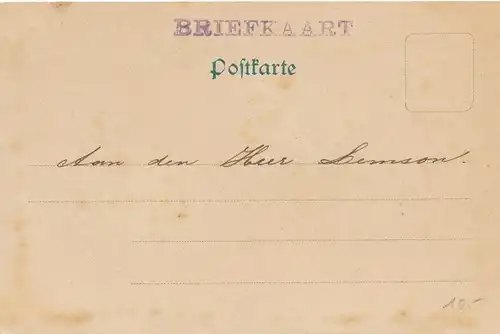 BRIEFKAART
Postkarte
Aan den Heer Lemson.
10.-